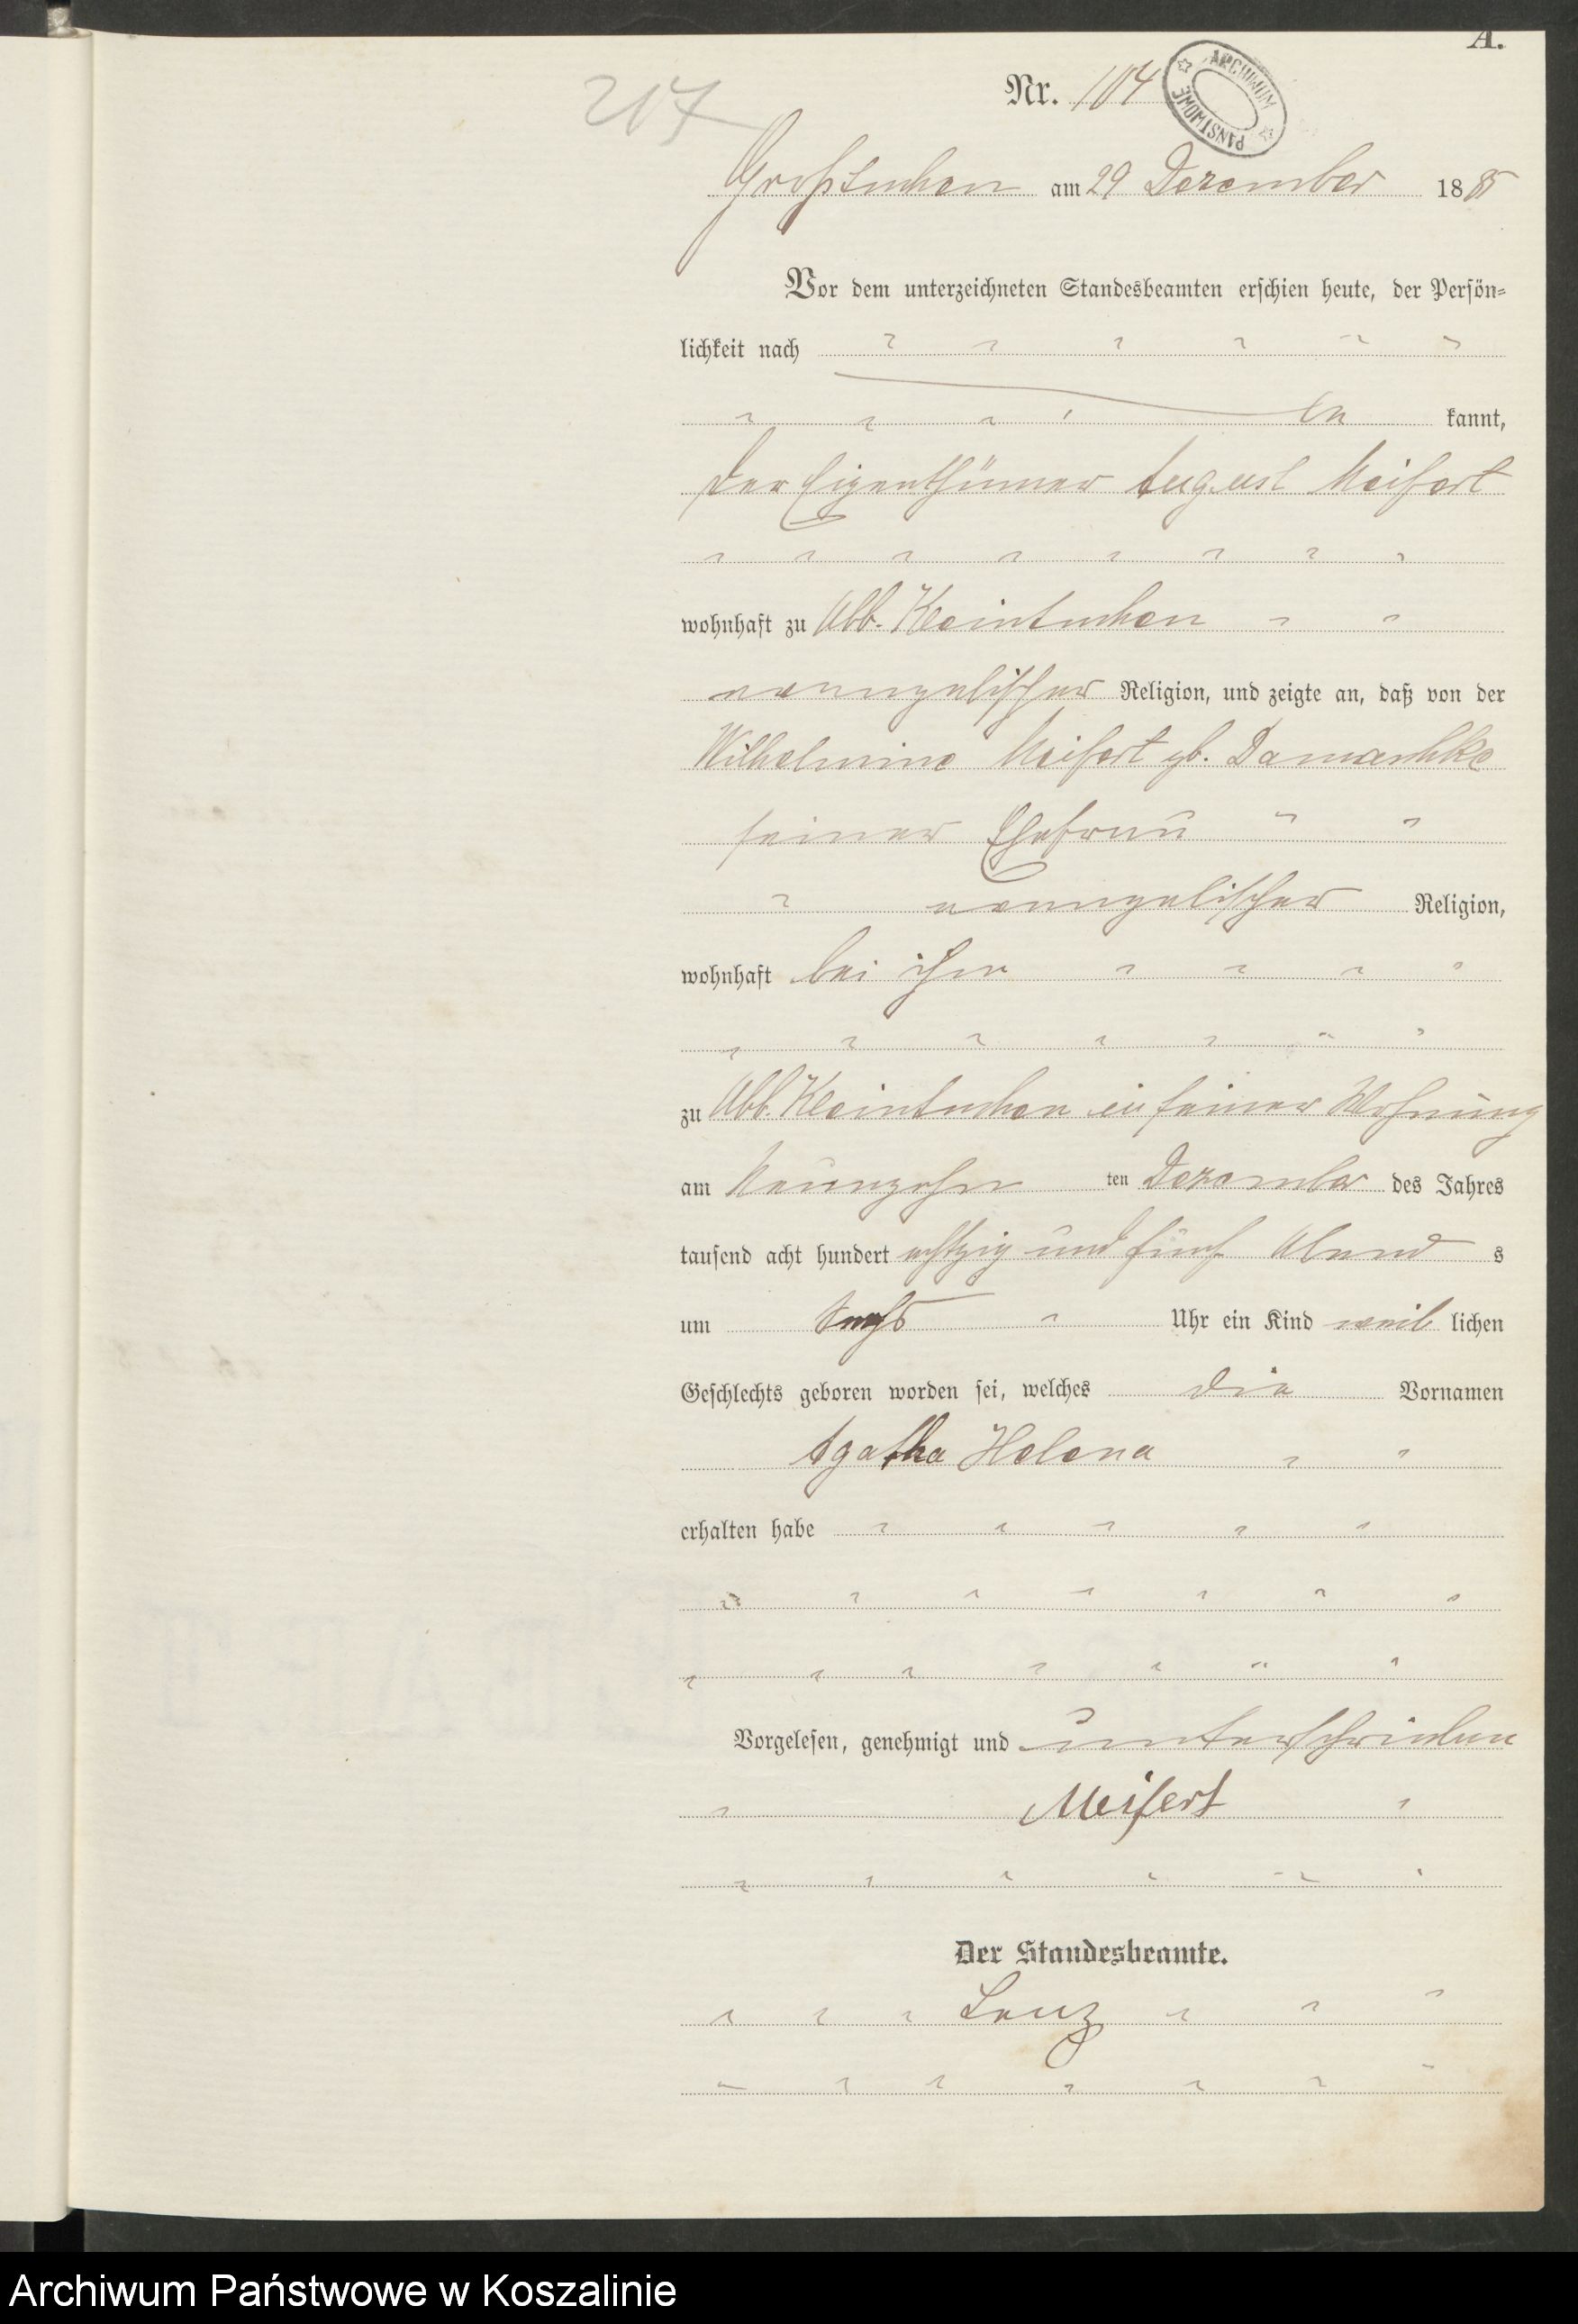 A.
217
Nr. 104
ARCHIWUM PAŃSTWOWE
Großtuchen am 29 Dezember 1885
Vor dem unterzeichneten Standesbeamten erschien heute, der Persön-
lichkeit nach
be kannt,
der Eigenthümer August Meifert
wohnhaft zu Abb. Kleintuchen
evangelischer Religion, und zeigte an, daß von der
Wilhelmine Meifert gb. Damaschke
seiner Ehefrau
evangelischer Religion,
wohnhaft bei ihm
zu Abb. Kleintuchen in seiner Wohnung
am Neunzehn ten Dezember des Jahres
tausend acht hundert achtzig und fünf Abend s
um sechs Uhr ein Kind weib lichen
Geschlechts geboren worden sei, welches die Vornamen
Agatha Helena
erhalten habe
Vorgelesen, genehmigt und unterschrieben
Meifert
Der Standesbeamte.
Lenz
Archiwum Państwowe w Koszalinie